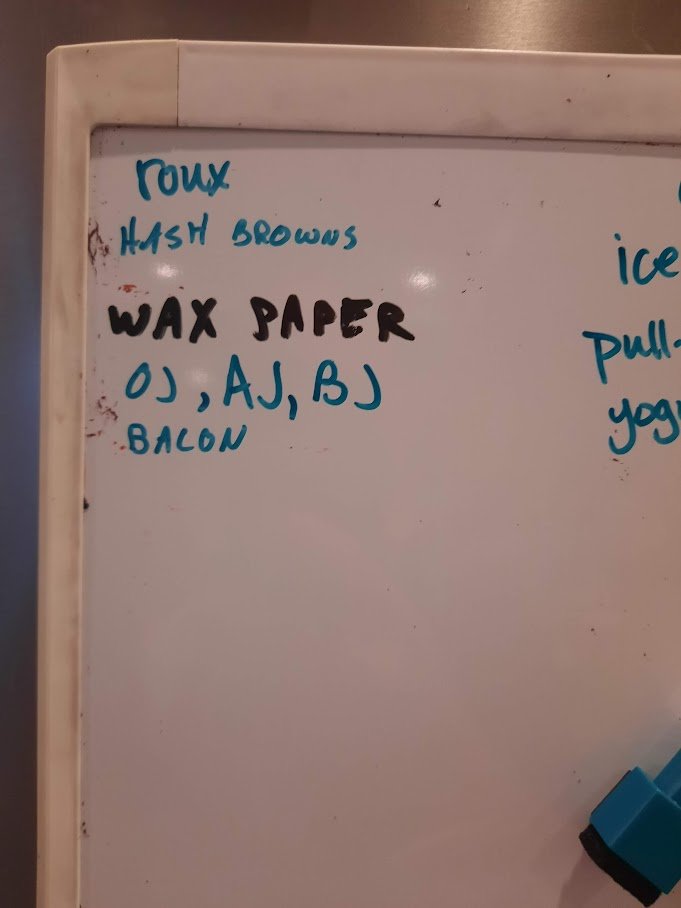 roux
HASH BROWNS
WAX PAPER
OJ, AJ, BJ
BACON
ice
pull-
yog